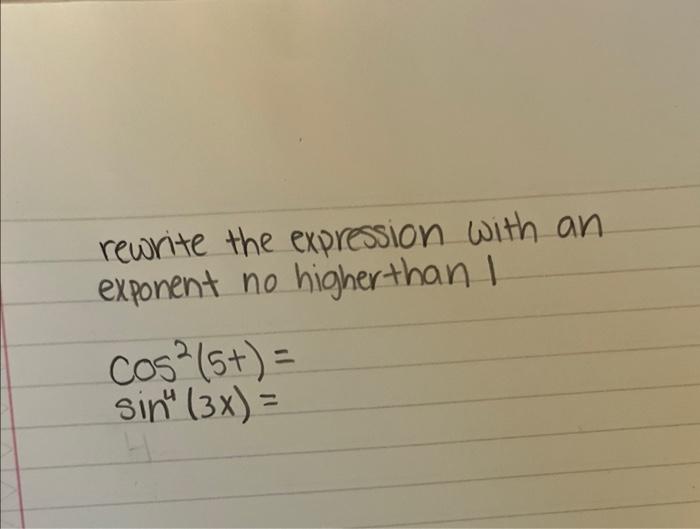 rewrite the expression with an
exponent no higher than 1
cos²(5t) =
sin⁴(3x) =
4